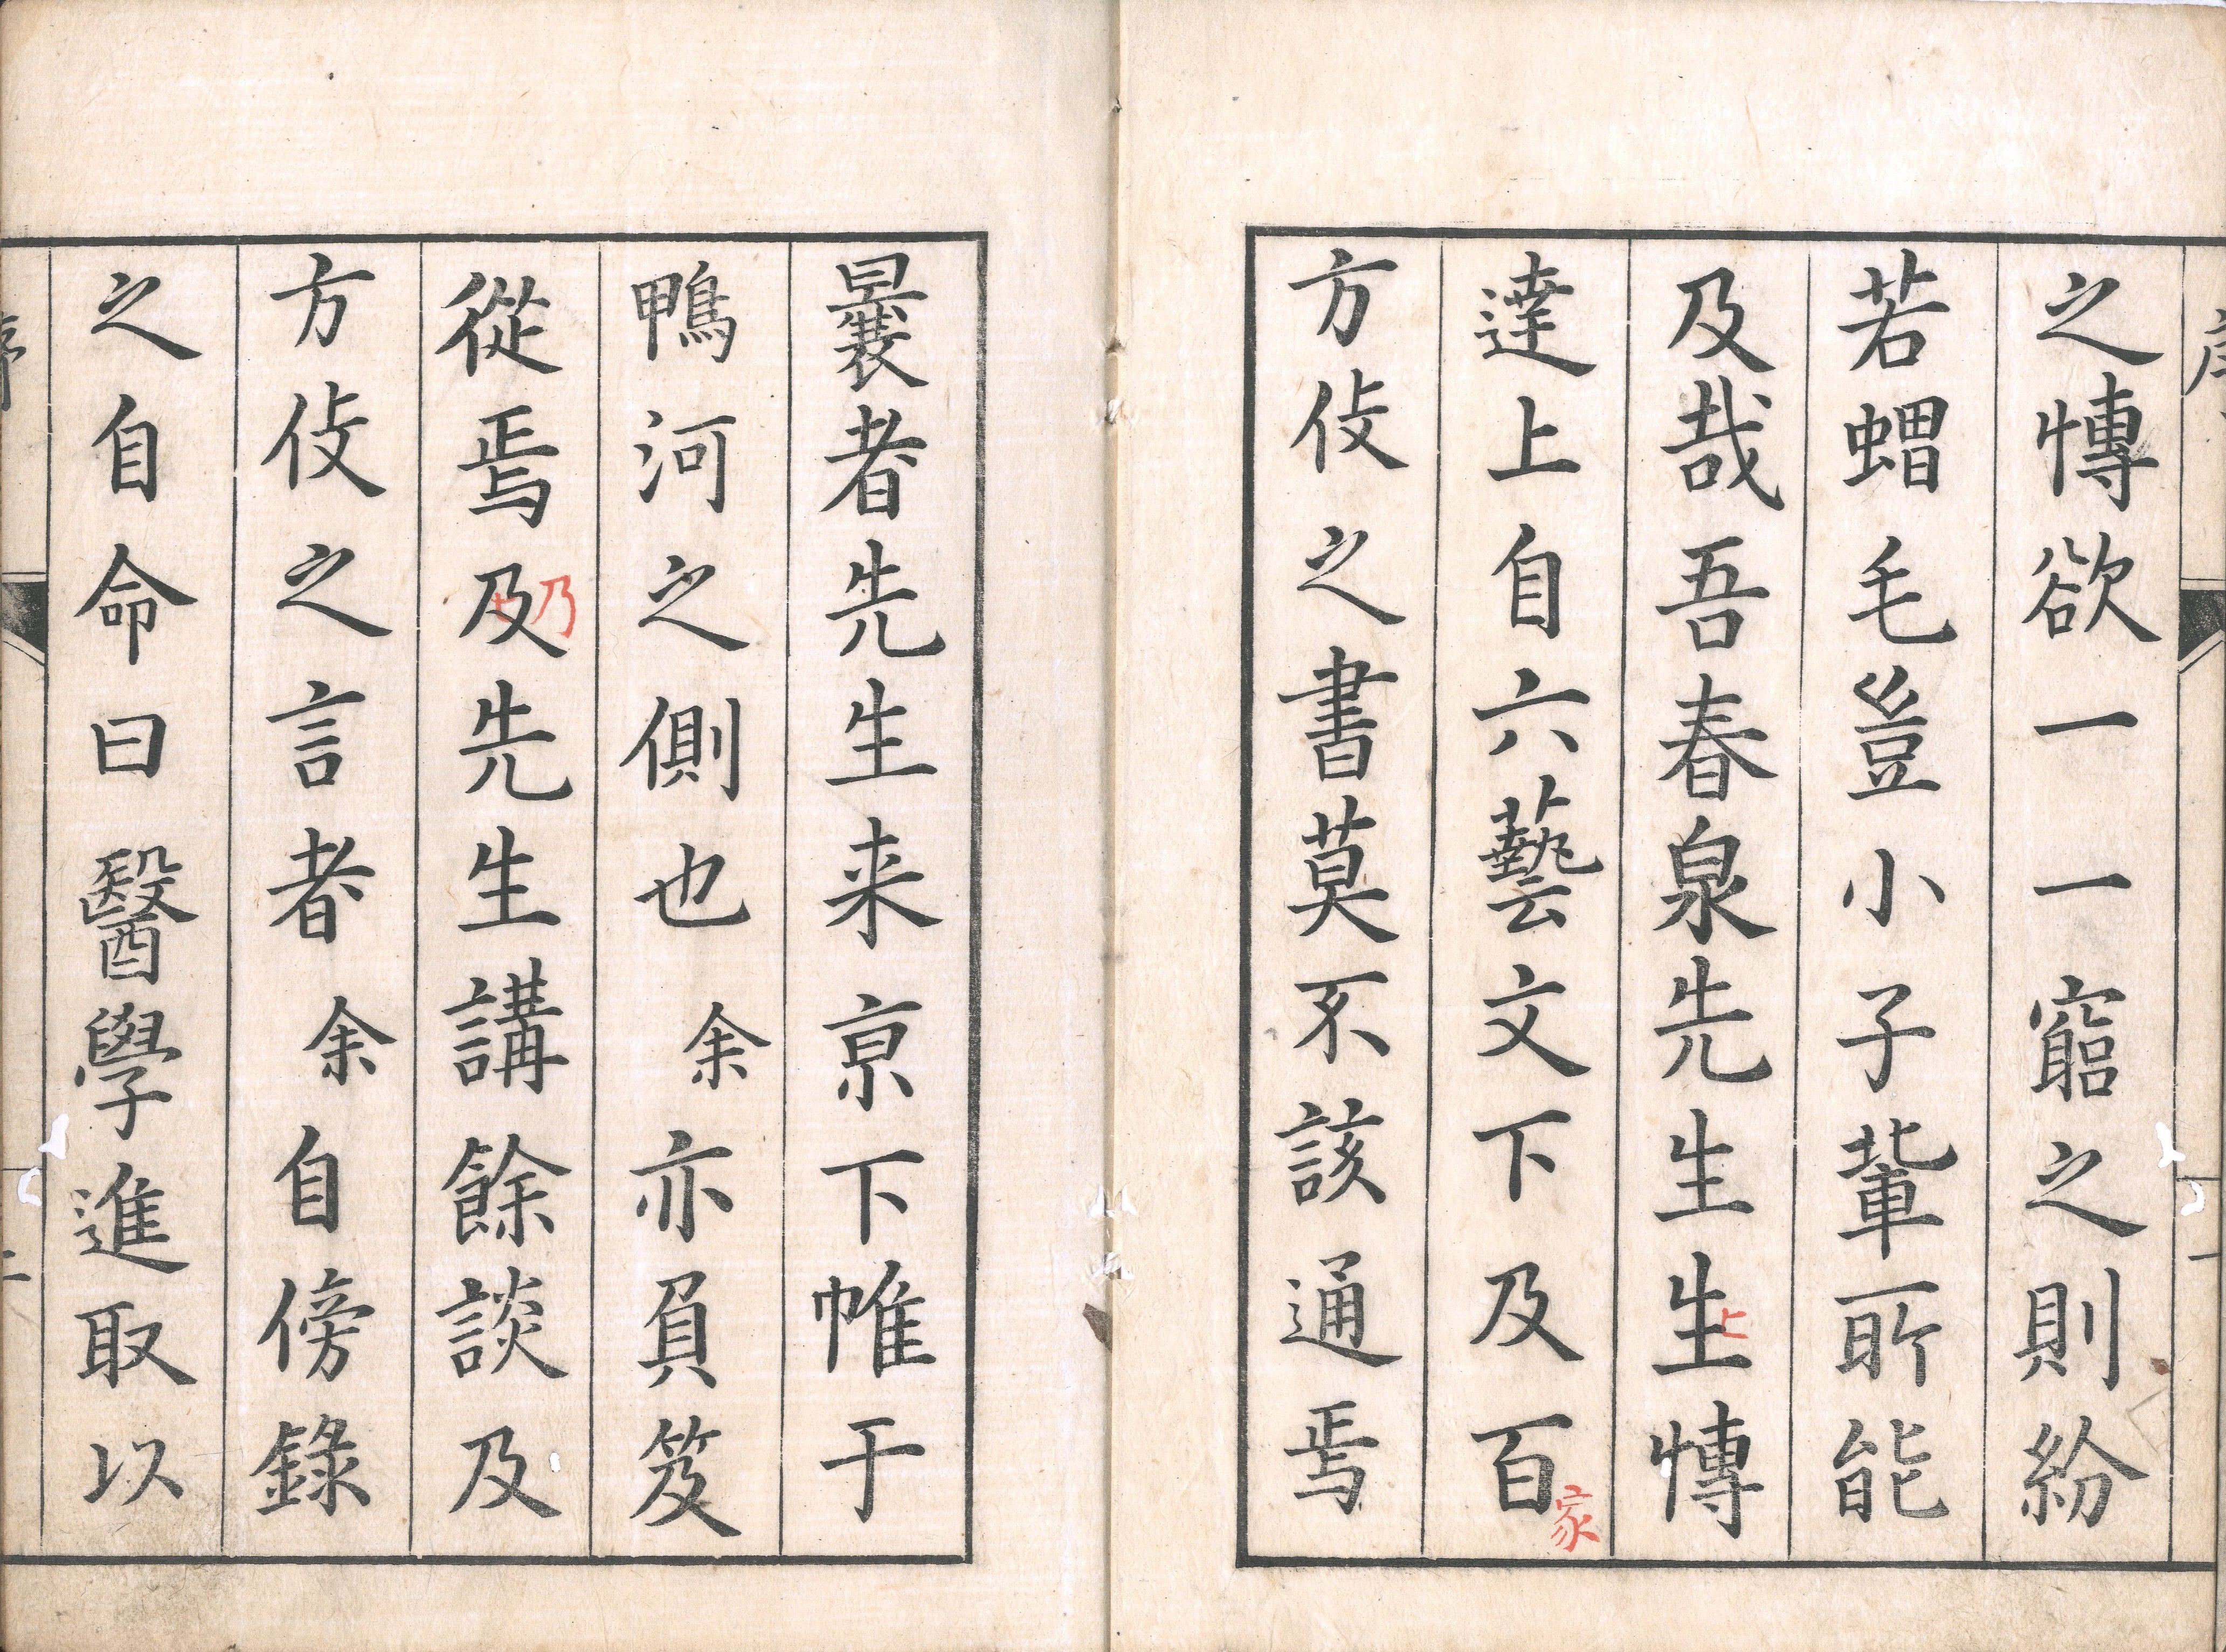 之愽欲一一窮之則紛
若蝟毛豈小子輩所能
及哉吾春泉先生生愽
達上自六藝文下及百
家
方伎之書莫不該通焉
曩者先生来亰下帷于
鴨河之側也余亦負笈
從焉及先生講餘談及
乃
方伎之言者余自傍錄
之自命曰醫學進取以
序
二